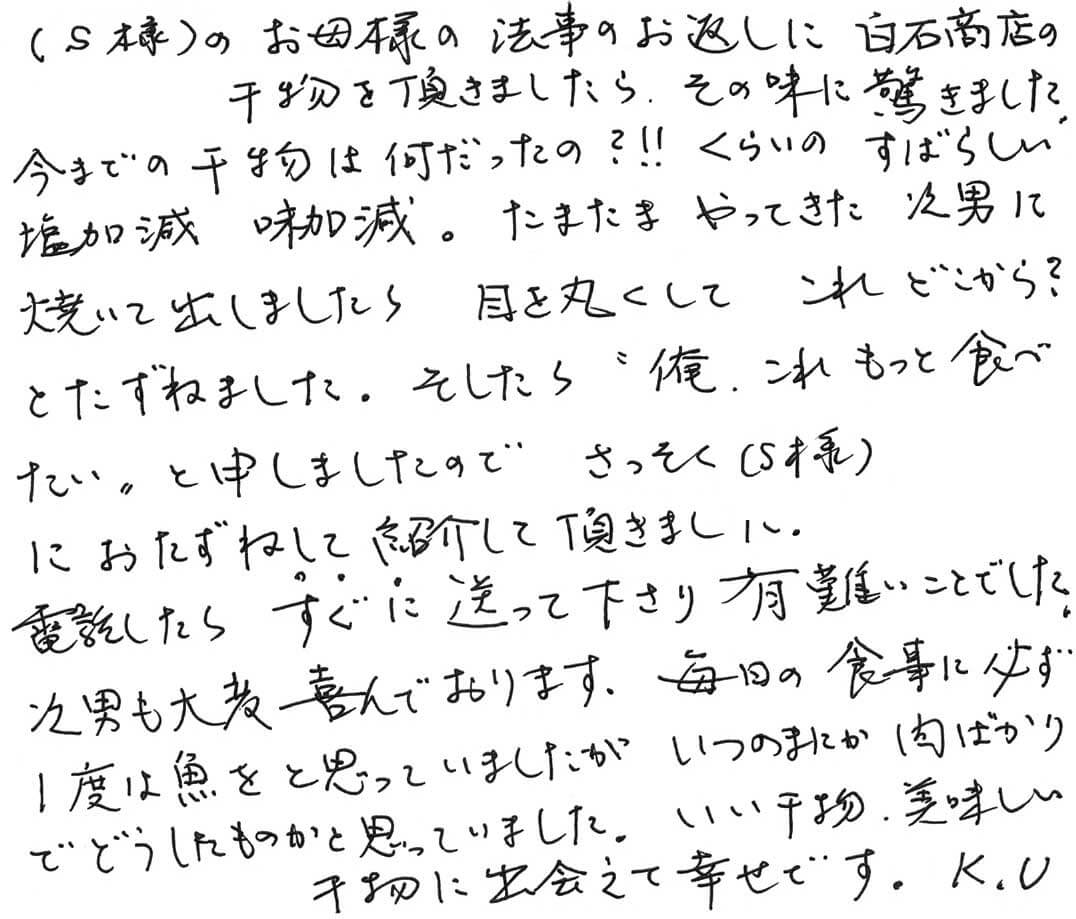 (S様)の お母様の 法事のお返しに 白石商店の
干物を頂きましたら、その味に驚きました。
今までの干物は何だったの?!! くらいの すばらしい
塩加減 味加減。たまたま やってきた 次男に
焼いて出しましたら 目を丸くして これ どこから?
とたずねました。そしたら〝俺、これ もっと 食べ
たい〟と申しましたので さっそく (S様)
に おたずねして 紹介して頂きました。
電話したら すぐに 送って下さり 有難いことでした。
次男も大変喜んでおります。毎日の 食事に必ず
1度は魚をと思っていましたが いつのまにか 肉ばかり
でどうしたものかと思っていました。いい干物、美味しい
干物に出会えて幸せです。 K.U